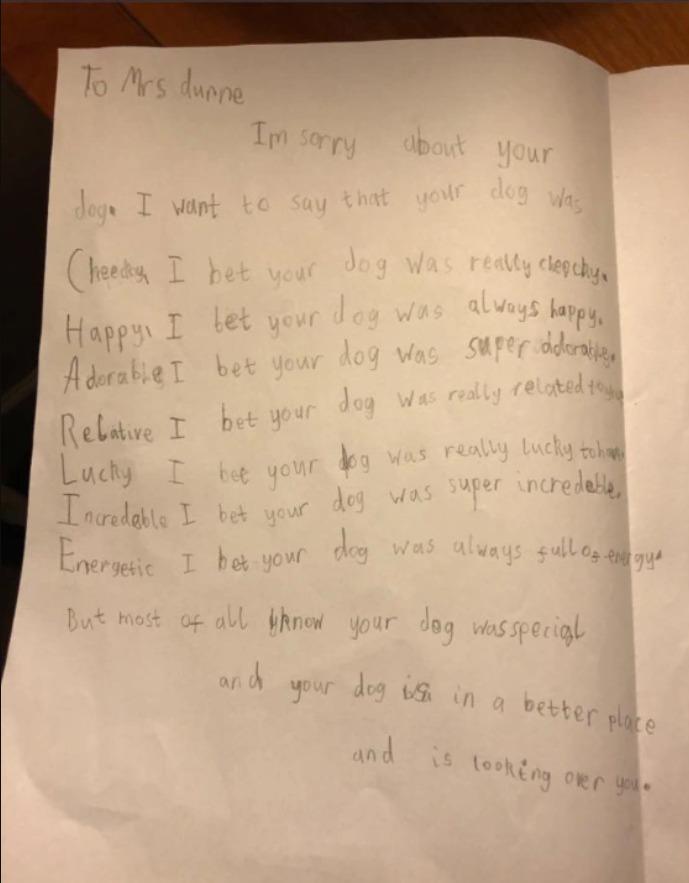 To Mrs dunne
Im sorry about your
dog. I want to say that your dog was
Cheeky I bet your dog was really cheechy.
Happy, I bet your dog was always happy.
Adorable I bet your dog was super adorable.
Relative I bet your dog was really related to you
Lucky I bet your dog was really lucky to have
Incredable I bet your dog was super incredeble.
Energetic I bet your dog was always full of energy.
But most of all I know your dog was special
and your dog is in a better place
and is looking over you.